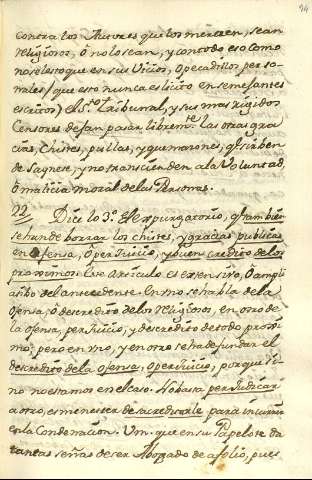 94
contra los Autores que los merecen, sean
religiosos, ò no lo sean, y con todo eso como
no se les toque en sus Vicios, ò pecadillos perso-
nales (que esto nunca es licito en semejantes
escritos) el S.to Tribunal, y sus mas rigidos
Censores dejan pasar librem.te las otras gra-
cias, Chistes, pullas, y quemazones, q.e sirben
de Saynete, y no transcienden a la Voluntad,
ò malicia moral de las Personas.
22 Dice lo 3.o el expurgatorio, q.e tambien
se han de borrar los chistes, y gracias publicas
en ofensa, ò perjuicio, y buen credito de los
proximos. Este Articulo es extensivo, ò ampli
atibo del antecedente. En uno se habla de la
ofensa, ò descredito de los religiosos, en otro de
la ofensa, perjuicio, y descredito de todo proxi
mo; pero en uno, y en otro se ha de fundar el
descredito de la ofensa, ò perjuicio, porque si
no no estamos en el caso. No basta perjudicar
a otro, es menester desacreditarle para incurrir
en la Condenacion. Vm. que en su Papelote da
tantas señas de ser Abogado de a folio, pues